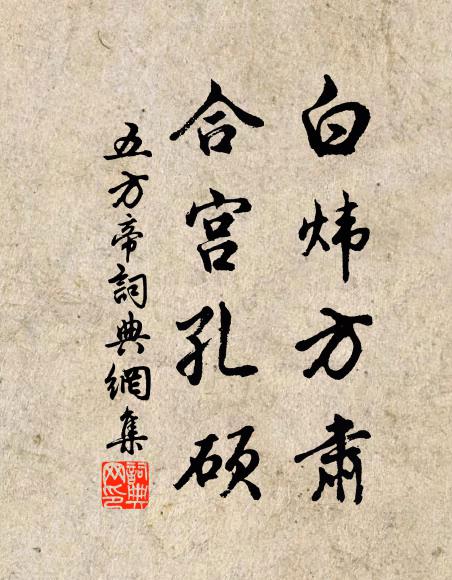 白炜方肃
合宫孔硕
五方帝詞典網集
詞典网印